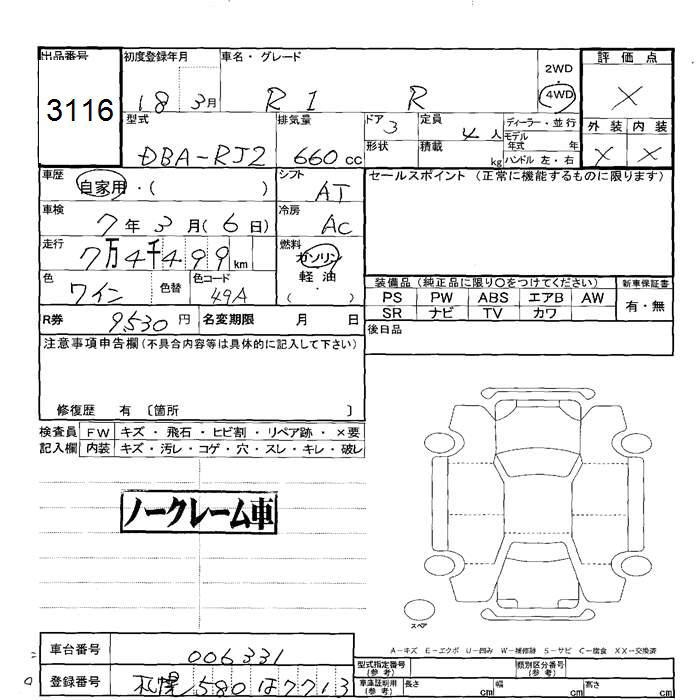 出品番号 初度登録年月 車名・グレード 2WD・4WD 評価点
3116 18 3月 R1 R ×
型式 排気量 ドア 3 定員 4人 ディーラー・並行 外装 内装
DBA-RJ2 660cc 形状 積載 kg モデル年式 年 × ×
ハンドル 左・右
車歴 自家用・( ) シフト AT セールスポイント (正常に機能するものに限ります)
車検 7年3月(6日) 冷房 AC
走行 7万4千499km 燃料 ガソリン 軽油 ( ・ )
色 ワイン 色替 色コード 49A 装備品(純正品に限り○をつけてください) 新車保証書
PS PW ABS エアB AW 有・無
SR ナビ TV カワ
R券 9530円 名変期限 月 日 後日品
注意事項申告欄(不具合内容等は具体的に記入して下さい)
修復歴 有 〔箇所 〕
検査員 FW キズ・飛石・ヒビ割・リペア跡・×要
記入欄 内装 キズ・汚レ・コゲ・穴・スレ・キレ・破レ
ノークレーム車
スペア
A-キズ E-エクボ U-凹み W-補修跡 S-サビ C-腐食 XX-交換済
車台番号 006331 型式指定番号(参考) 類別区分番号(参考)
登録番号 札幌580ほ7713 車庫証明用(参考) 長さ cm 幅 cm 高さ cm